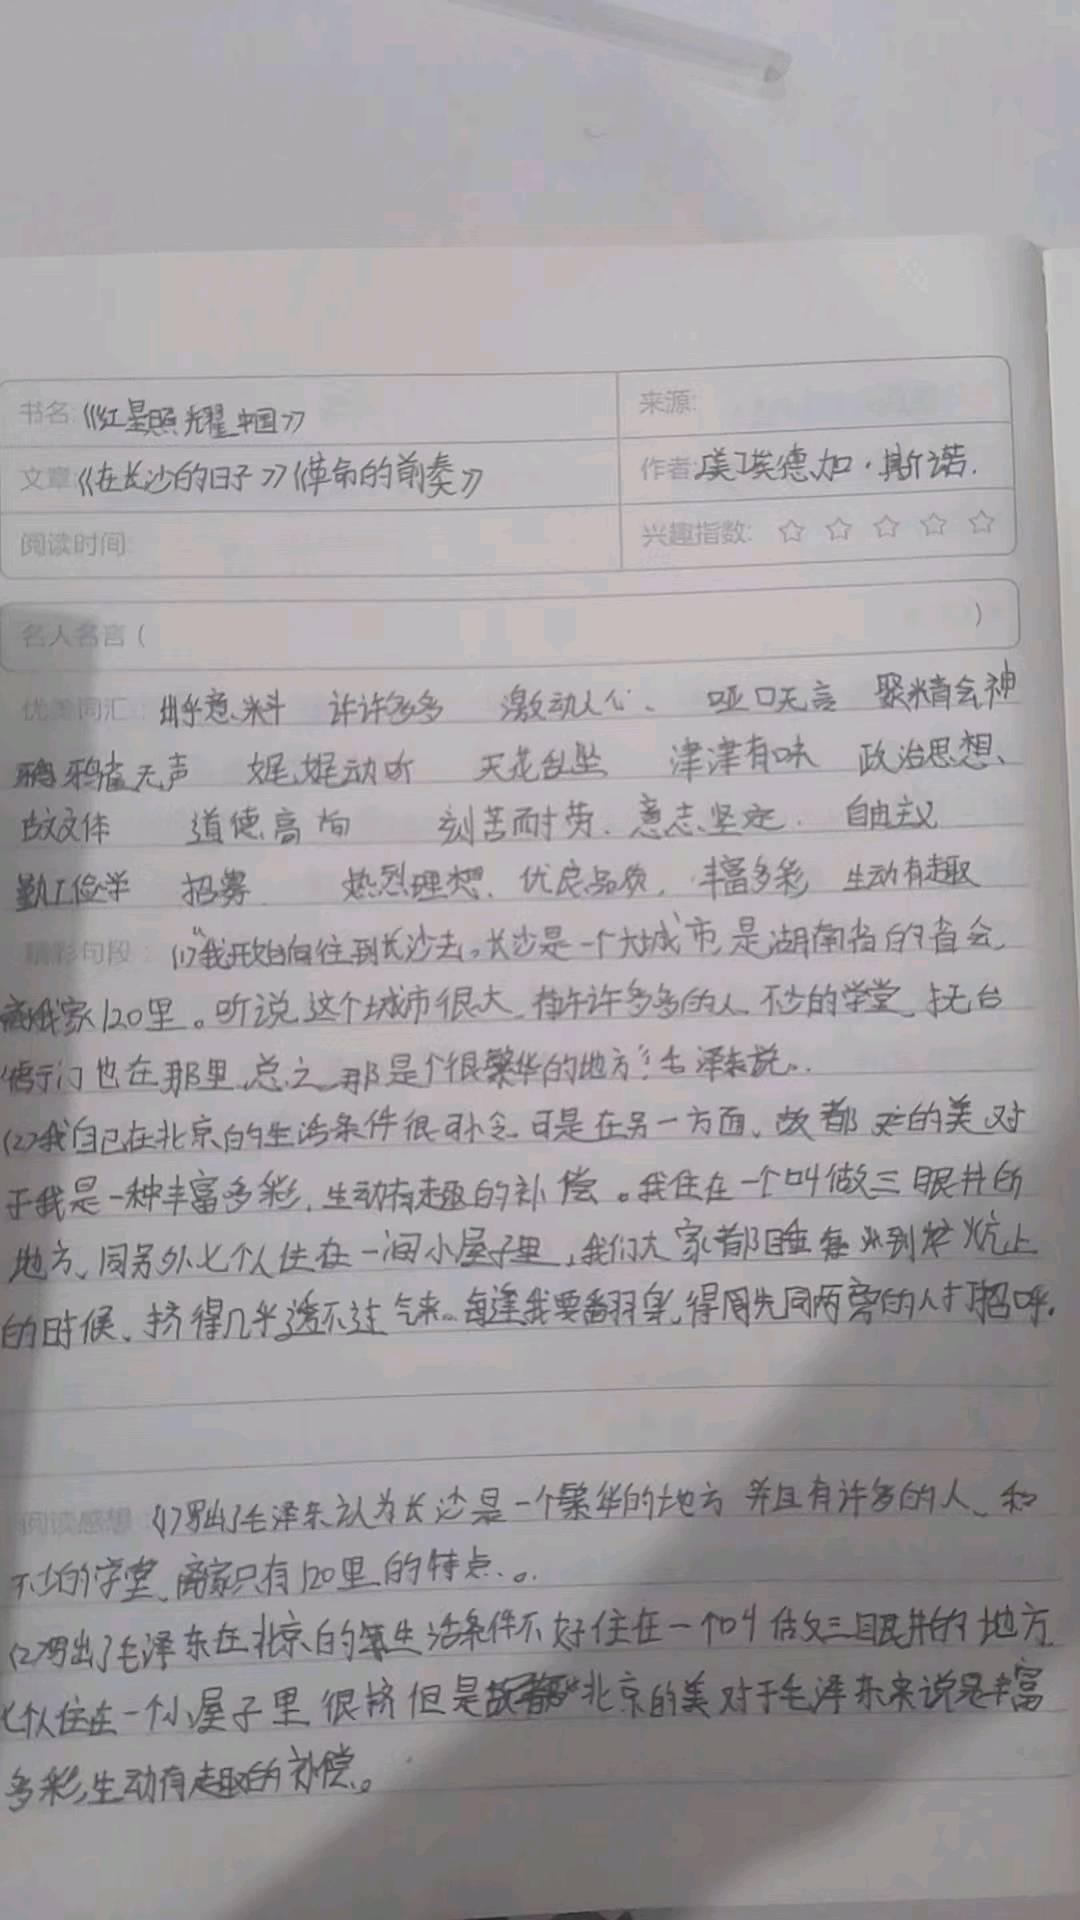 书名:《红星照耀中国》
来源:
文章《在长沙的日子》《革命的前奏》
作者:[美]埃德加·斯诺.
阅读时间:
兴趣指数: ☆ ☆ ☆ ☆ ☆
名人名言 ( )
优美词汇: 出乎意料 许许多多 激动人心、 哑口无言 聚精会神
鸦雀无声 娓娓动听 天花乱坠 津津有味 政治思想、
古文文体 道德高尚 刻苦耐劳、意志坚定. 自由主义
勤工俭学 招募 热烈理想、优良品质, 丰富多彩 生动有趣
精彩句段: (1)"我开始向往到长沙去。长沙是一个大城市 是湖南省的省会
离我家120里。听说这个城市很大、有许许多多的人 不少的学堂、抚台
衙门也在那里、总之 那是个很繁华的地方"毛泽东说。
(2)我自己在北京的生活条件很可怜、可是在另一方面、故都 的美对
于我是一种丰富多彩, 生动有趣的补偿。我住在一个叫做三眼井的
地方、同另外七个人住在一间小屋子里,我们大家都睡 到 炕上
的时候、挤得几乎透不过气来。每逢我要翻身,得 先同两旁的人打招呼.
阅读感想: (1)写出了毛泽东认为长沙是一个繁华的地方 并且有许多的人、和
不少的学堂、离家只有120里的特点、。
(2)写出了毛泽东在北京的 生活条件不好住在一个叫做三眼井的地方
七个人住在一个小屋子里 很挤 但是 北京的美对于毛泽东来说是丰富
多彩,生动有趣的补偿。